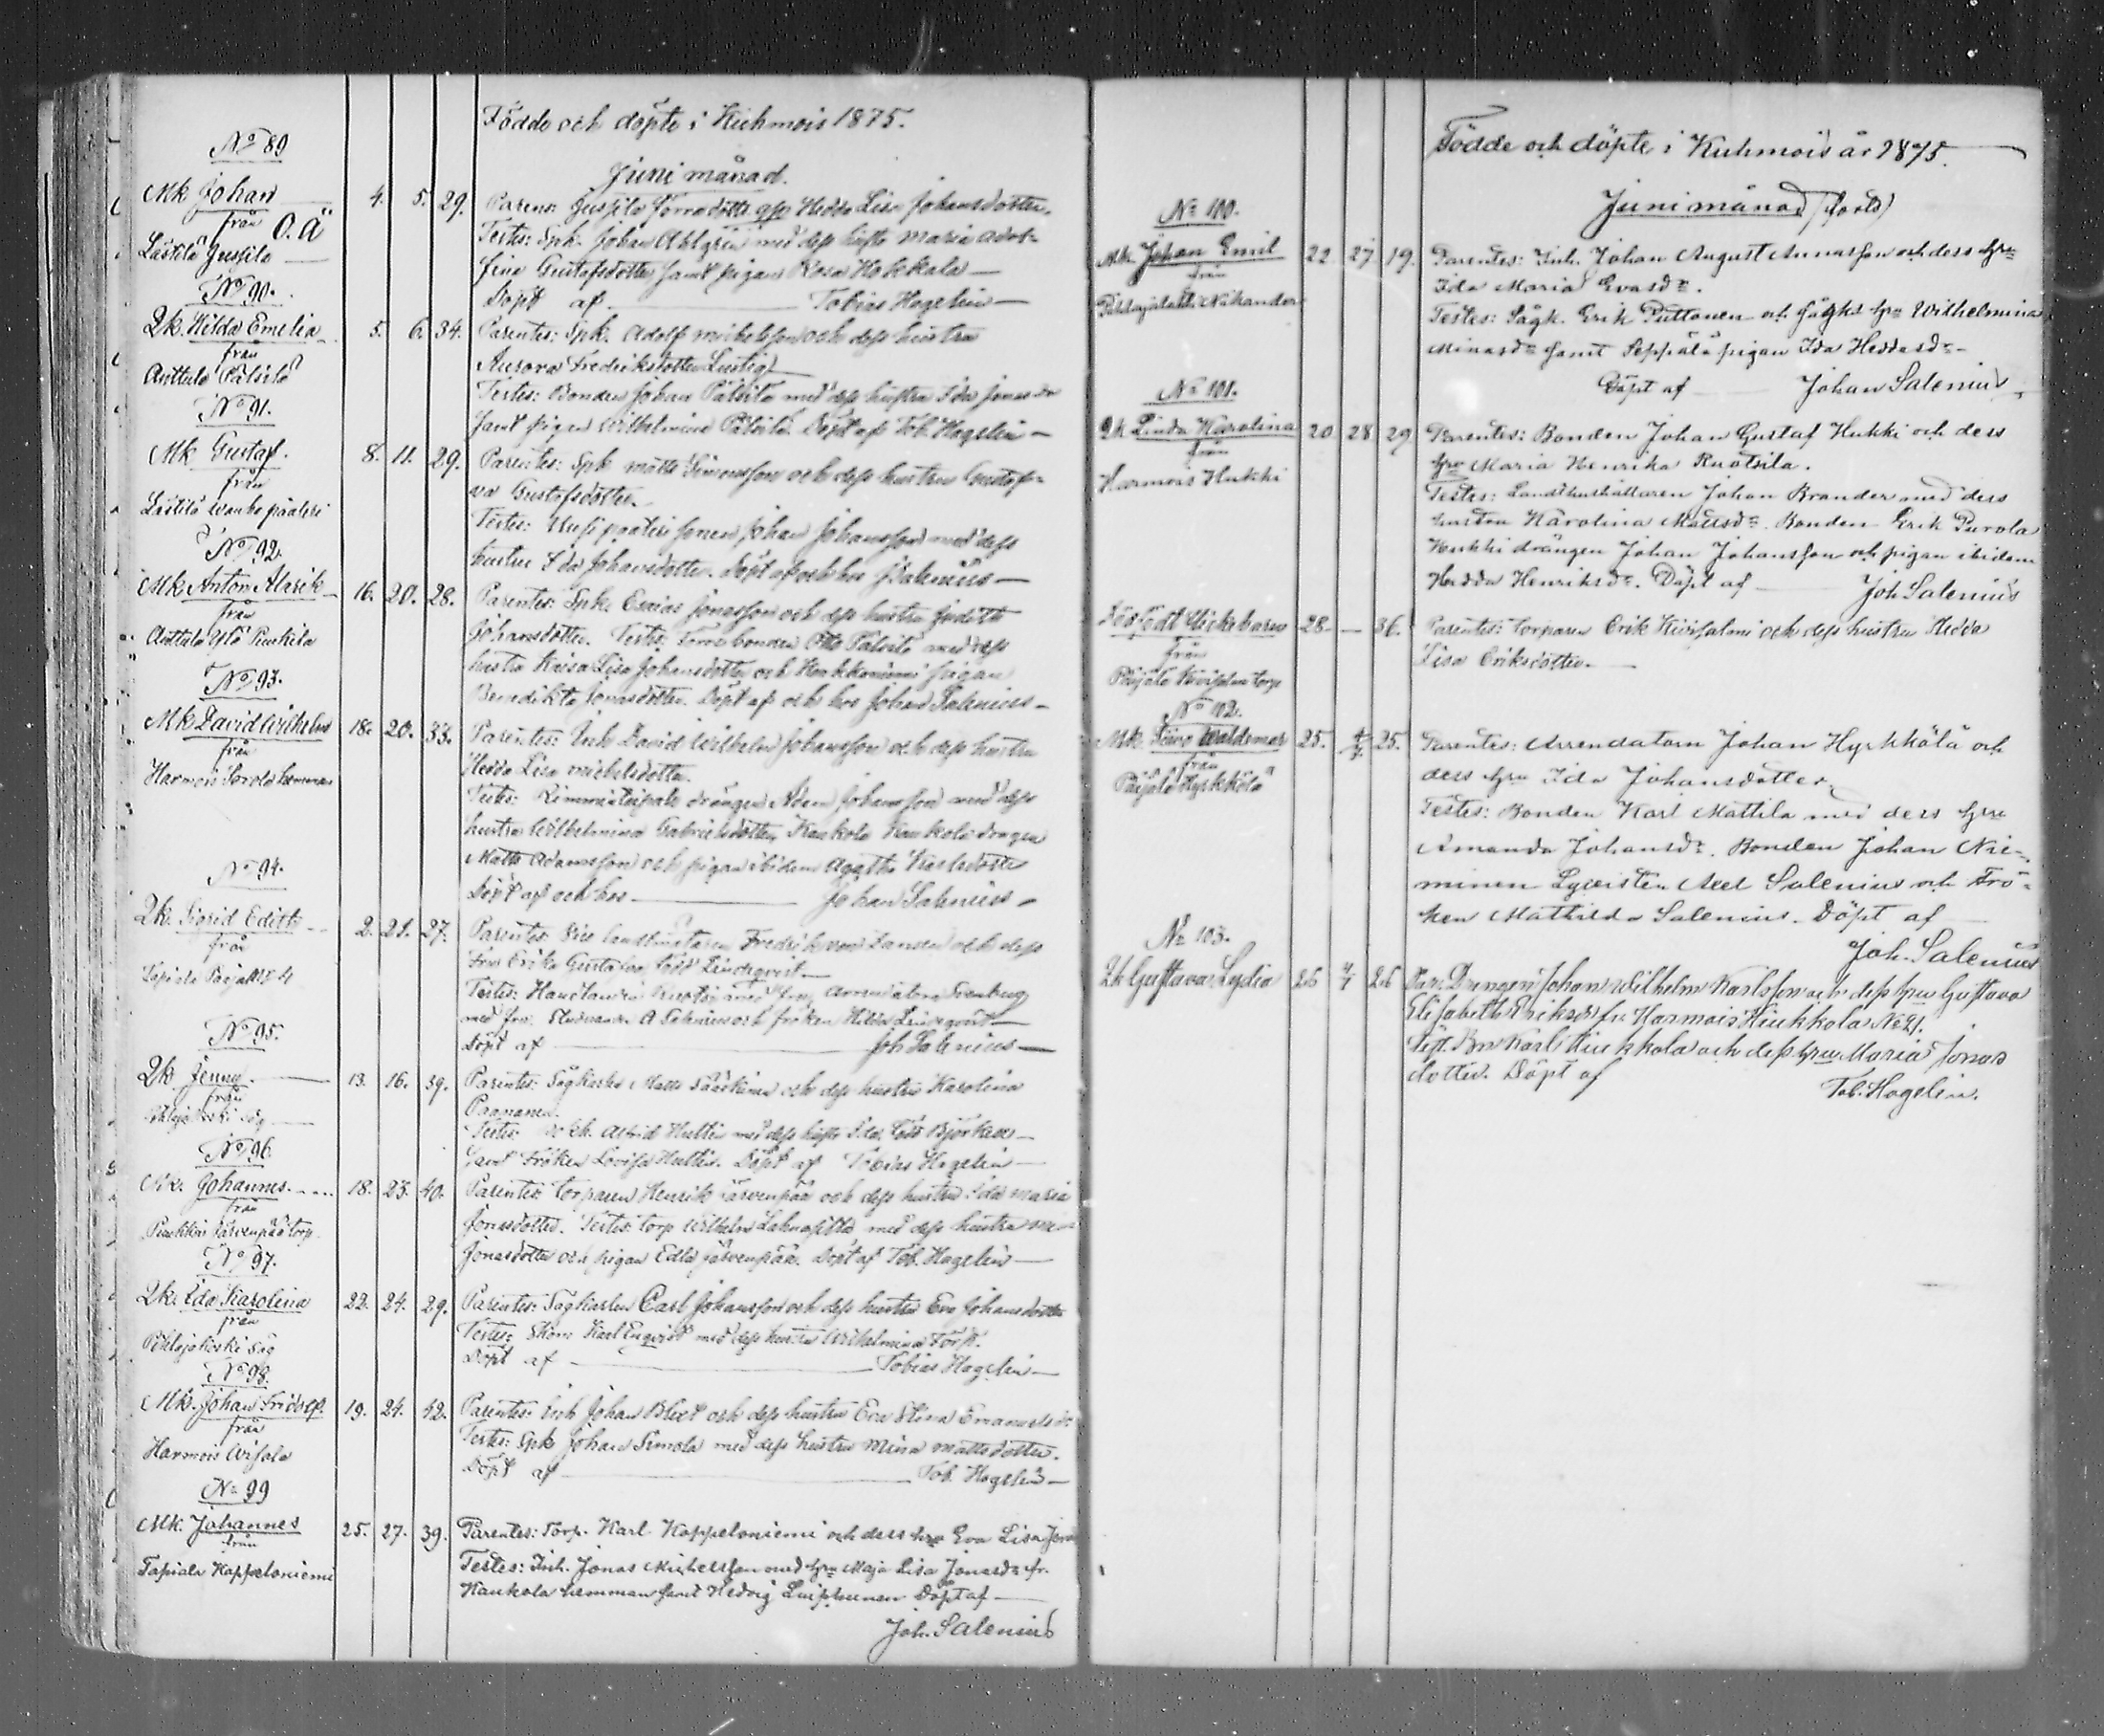 Födde och döpte i Kuhmois 1875.
Juni månad.
No 89
Mk Johan 4. 5. 29.
från O.Ä
Lästilä Jussila
Parens: Jussila Torredotter qp Hedda Lisa Johansdotter.
Testes: Spk. Johan Ahlgren med dess hustr Maria Adol-
fina Gustafsdotter samt pigan Rosa Hokkala
Döpt af Tobias Hagelin
No 90.
Qk. Hilda Emelia 5. 6. 34.
från
Anttula Pätsilä
Parentes: Spk. Adolf Michelsson och dess hustru
Aurora Fredriksdotter Lustig
Testes: Bonden Johan Pätsilä med dess hustru Ida Jonasdr
samt pigan Wilhelmina Pätsilä. Döpt af Tob. Hagelin
No 91.
Mk Gustaf. 8. 11. 29.
från
Lästilä Wanhapääteri
Parentes: Spk Matts Simonsson och dess hustru Gustaf-
va Gustafsdotter.
Testes: Uusipääteri sonen Johan Johansson med dess
hustru Ida Johansdotter. Döpt af och hos J Salenius
No 92.
Mk Anton Alarik 16. 20. 28.
från
Anttula Ylö Punkila
Parentes: Spk. Esaias Jonasson och dess hustru Judith
Johansdotter. Testes: bonden Otto Pätsilä med dess
hustru Kaisa Lisa Johansdotter och Honkkaniemi pigan
Benedikta Jonasdotter. Döpt af och hos Johan Salenius
No 93.
Mk David Wilhelm 18. 20. 33.
från
Harmois Sorola hemman
Parentes: Inh David Wilhelm Johansson och dess hustru
Hedda Lisa Michelsdotter.
Testes: drängen Adam Johansson med dess
hustru Wilhelmina Gabrielsdotter, Kaukola Kaukola drängen
Matts Adamsson och pigan ibidem Agatha Karlsdotter
Döpt af och hos Johan Salenius
No 94.
Qk. Sigrid Edith 2. 21. 27.
från
Tapiala
Parentes: Vice landtmätaren Fredrik von Zansen och dess
Fru Erika Gustafva född Lindeqvist
Testes: Handlanden med fru, Arrendatorn
med fru. Studeranden A Salenius och fröken Hilda Lindeqvist
Döpt af Joh Salenius
No 95.
Qk. Jenny. 13. 16. 39.
från
Pihlajakoski såg
Parentes: Sågkarlen Matts Sääskinen och dess hustru Karolina
Paananen.
Testes: Alfrid Hultin med dess hustr Ida född Björkman
samt Fröken Lovisa Hultin. Döpt af Tobias Hagelin
No 96
Mk. Johannes. 18. 23. 40.
från
Järvenpää torp
Parentes: torparen Henrik Järvenpää och dess hustru Ida Maria
Jonasdotter. Testes: torp Wilhelm Lahnapitka med dess hustru
Jonasdotter och pigan Edla Järvenpää. Döpt af Tob. Hagelin
No 97.
Qk. Ida Karolina 22. 24. 29.
från
Pihlajakoski såg
Parentes: Sågkarlen Carl Johansson och dess hustru Eva Johansdotter
Testes: Skom Karl Enqvist med dess hustru Wilhelmina Forss.
Döpt af Tobias Hagelin
No 98.
Mk. Johan Fridolf. 19. 24. 42.
från
Harmois Arfsala
Parentes: Inh Johan Blixt och dess hustru Eva Stina Emanuelsdr
Testes: Spk Johan Simola med dess hustru Mina Mattsdotter.
Döpt af Tob. Hagelin
No 99
Mk. Johannes 25. 27. 39.
från
Tapiala Kappeloniemi
Parentes: Torp. Karl Kappeloniemi och dess hru Eva Lisa
Testes: Inh. Jonas Michelsson med hru Maja Lisa Jonasdr fr.
Kaukola hemman samt Hedvig Döpt af
Joh. Salenius
Födde och döpte i Kuhmois år 1875.
Juni månad (forts)
No 100.
Mk. Johan Emil 22 27 19.
från
Nikander
Parentes: Inh. Johan August Annasson och dess hru
Ida Maria Evasdr.
Testes: Sågk. Erik Puttonen och sågks hru Wilhelmina
Minasdr samt Seppälä pigan Ida Heddasdr.
Döpt af Johan Salenius
No 101.
Qk Linda Karolina 20 28 29
från
Harmois Hukki
Parentes: Bonden Johan Gustaf Hukki och dess
hru Maria Henrika Ruotsila.
Testes: Landthushållaren Johan Brander med dess
hustru Karolina Mattsdr. Bonden Erik Purola
Hukki drängen Johan Johansson och pigan ibidem
Hedda Henriksdr. Döpt af Joh Salenius
Dödfödt flickebarn 28 — 36.
från
Päijälä Kivisalmi torp
Parentes: torparen Erik Kivisalmi och dess hustru Hedda
Lisa Eriksdotter.
No 102.
Mk. Toivo Waldemar 25. 4/7. 25.
från
Päijälä Hyrkkölä
Parentes: Arrendatorn Johan Hyrkkölä och
dess hru Ida Johansdotter.
Testes: Bonden Karl Mattila med dess hru
Amanda Johansdr. Bonden Johan Nie-
minen Lyceisten Axel Salenius och Frö-
ken Mathilda Salenius. Döpt af
Joh. Salenius
No 103.
Qk Gustava Lydia 26 4/7 26
Par. Drängen Johan Wilhelm Karlsson och dess hru Gustava
Elisabeth Eriksdr fr. Harmois Hiukkola No 21.
Test. Bn Karl Hiukkola och dess hru Maria Jonas
dotter. Döpt af Tob. Hagelin.